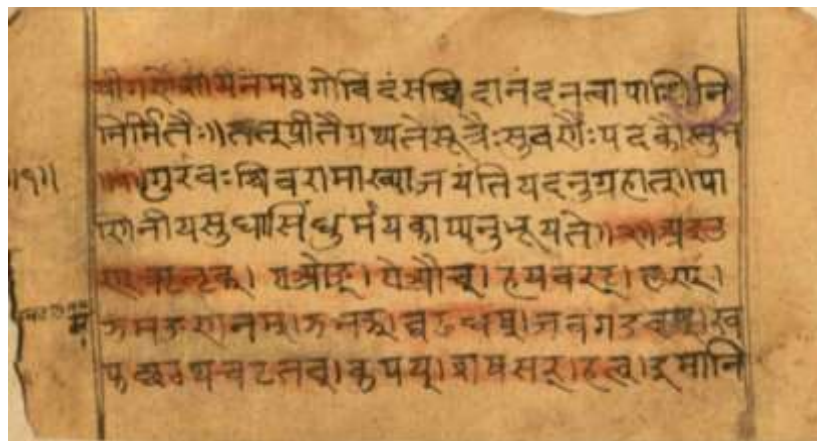 श्रीगणेशायनमः गोविदंसच्चिदानंदनत्वापाणिनि
निर्मितैः॥तत्प्रीतैग्रथ्यतेसूत्रैःसुवर्णैःपदकौस्तुभ
॥१॥
॥१॥गुरवःश्चिवरामाख्याजयंतियदनुग्रहात्॥पा
णिनीयसुधासिंधुर्मयकाप्यनुभूयते॥२॥अइउ
ण्।ऋलृक्।एओङ्।ऐऔच्।हयवरट्।लण्।
ञमङणनम्।झभञ्।घढधष्।जबगडदश्।ख
फछठथचटतव्।कपय्।शषसर्।हल्।इमानि